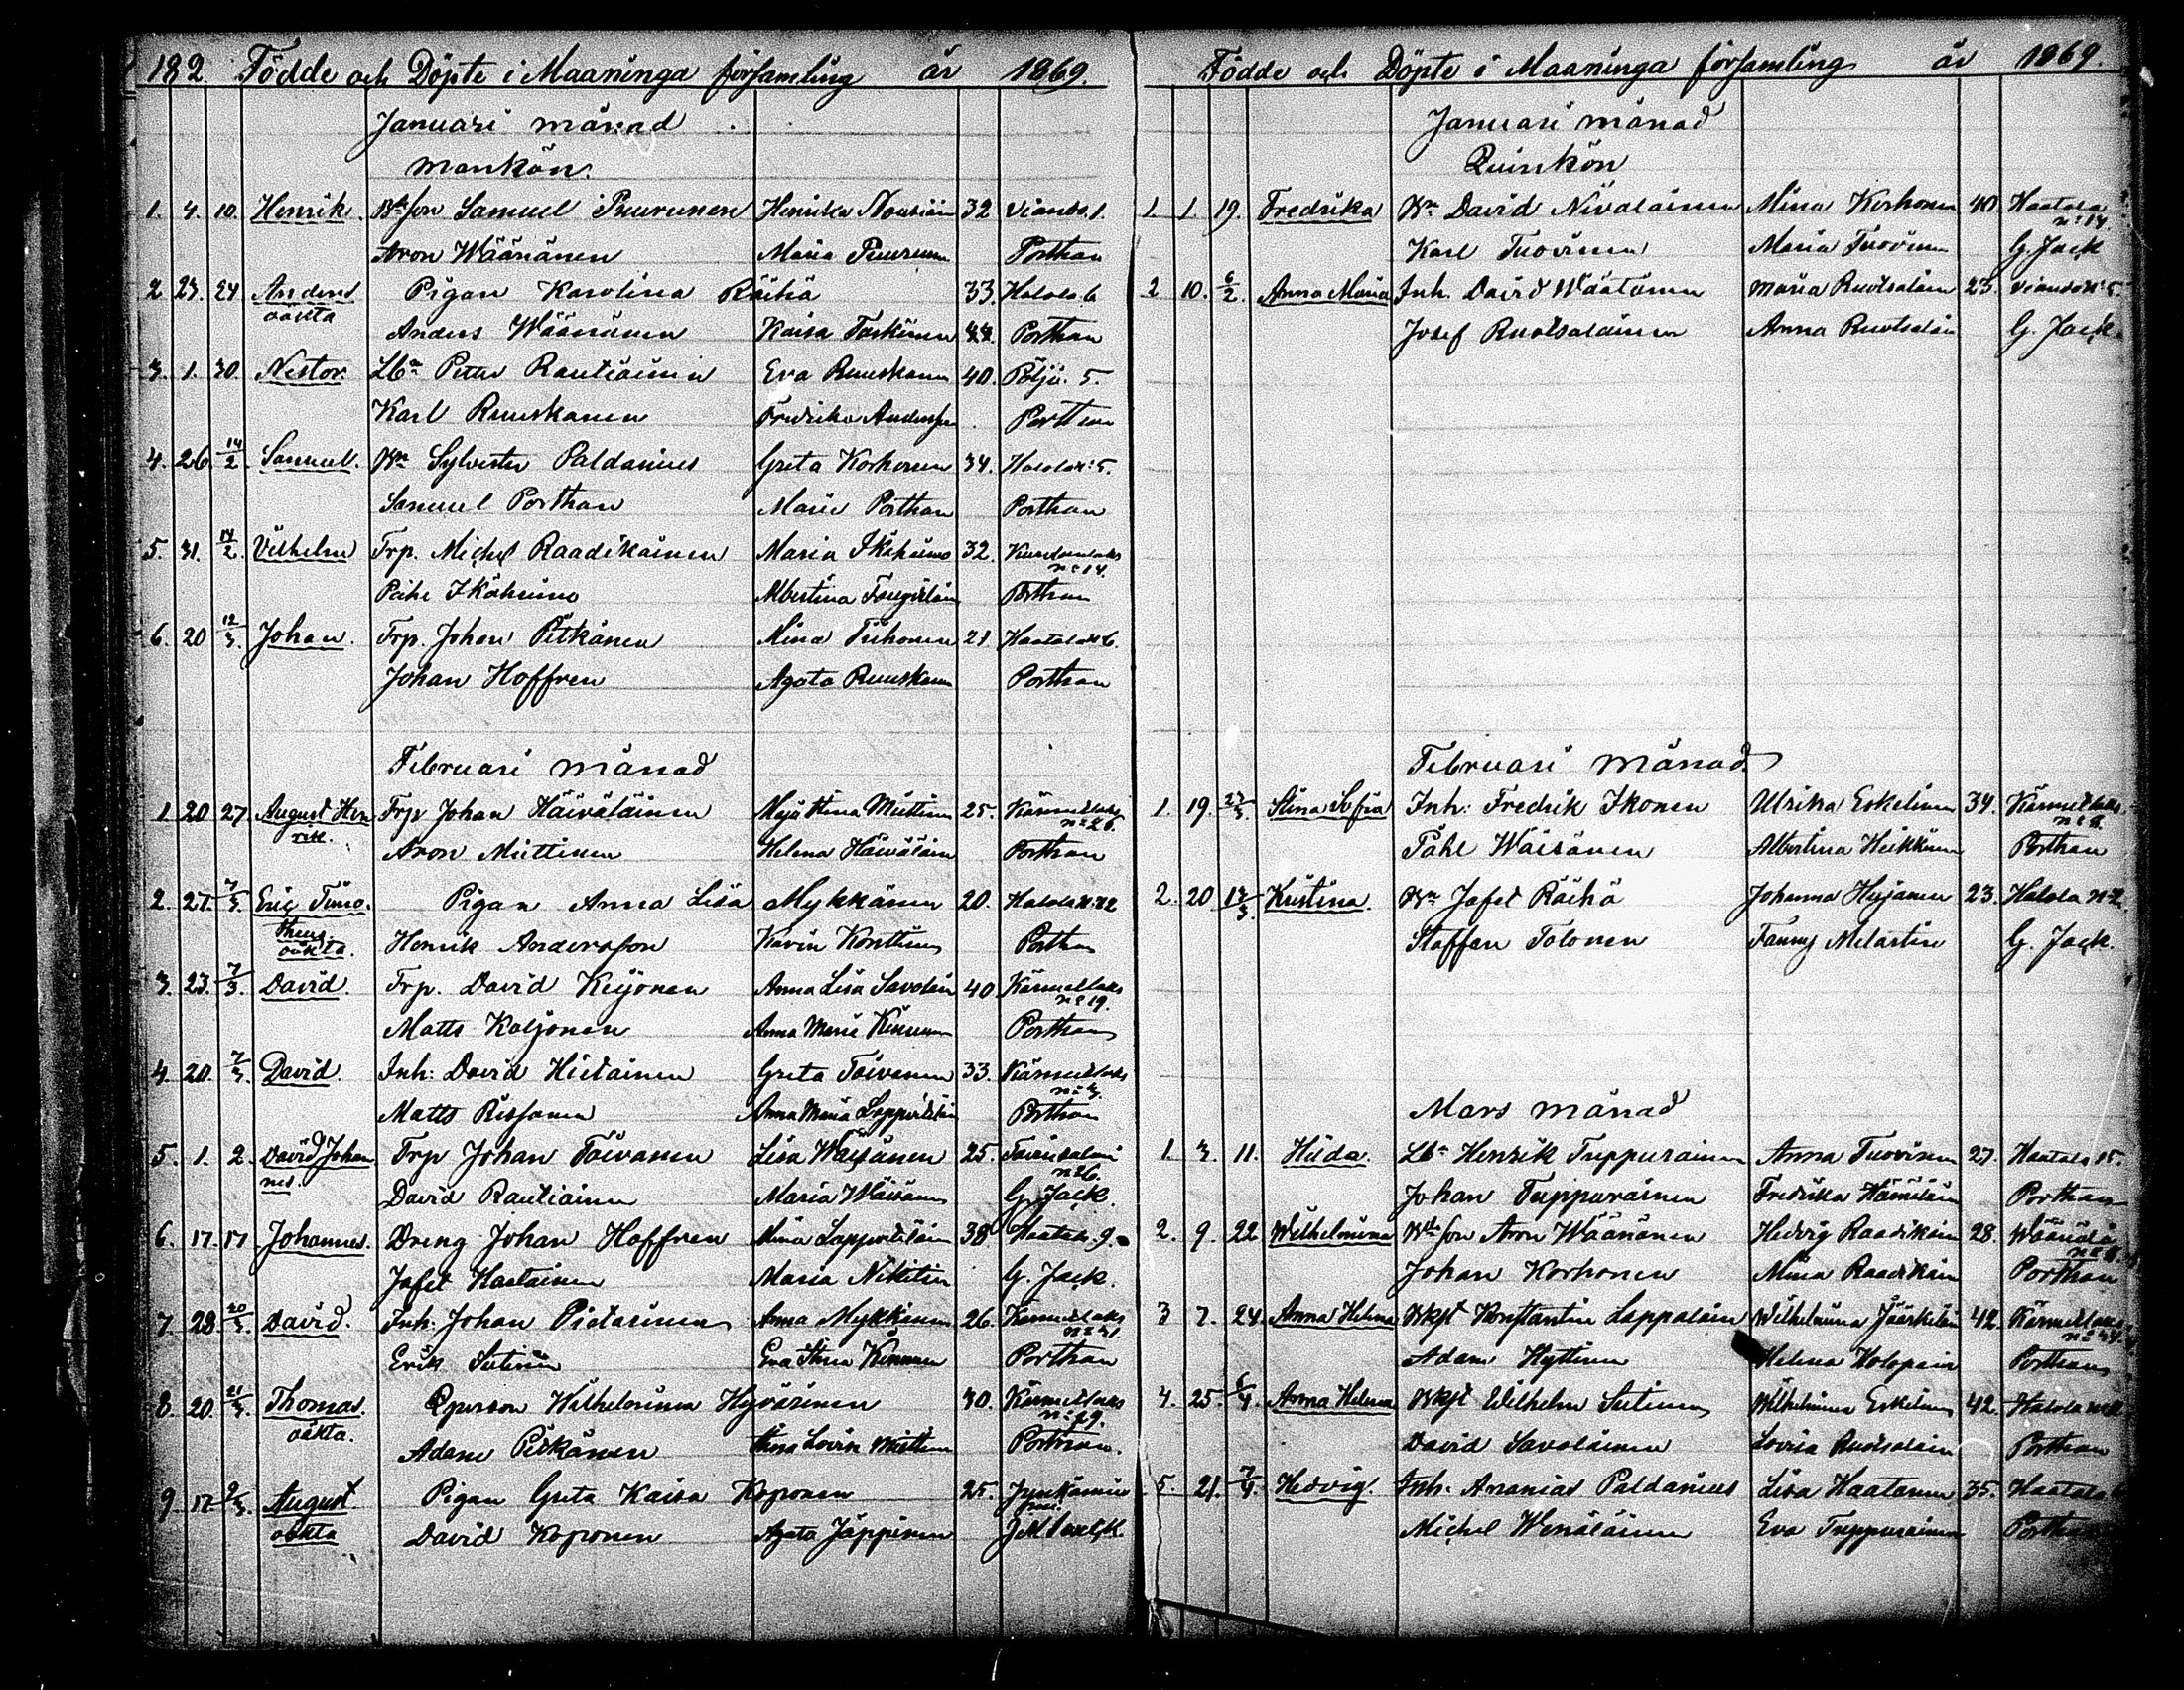 182 Födde och Döpte i Maaninga församling år 1869.
Januari månad
mankön.
1. 4. 10. Henrik. Bdeson Samuel Puurunen Henrika Nousiäin 32 Viands. 1.
Aron Wäänänen Maria Puurunen Porthan
2 23. 24 Anders Pigan Karolina Räihä 33. Halola 6
oäkta Anders Wäänänen Kaisa Taskinen 44. Porthan
3. 1. 30. Nestor. Lbn Petter Rautiainen Eva Ruuskanen 40. Pöljä. 5.
Karl Ruuskanen Fredrika Andersson Porthan
4. 26. 14/2 Samuel. Bn Sylvester Paldanius Greta Korhonen 34. Halola n:5.
Samuel Porthan Maria Porthan Porthan
5. 31. 14/2. Vilhelm Trp. Michel Raadikainen Maria Ikäheimo 32. Kurolanlaks
n:o 14.
Påhl Ikäheimo Albertina Porthan
6. 20 12/3. Johan. Trp. Johan Pitkänen Mina Tiihonen 21 Haatala n:6.
Johan Hoffren Agata Ruuskanen Porthan
Februari månad
1 20 27 August Hen Trp Johan Häiväläinen Maja Stina Miettinen 25. Kärmeslaks
rik. n:o 26.
Aron Miettinen Helena Häiväläin Porthan
2. 27. 7/3. Eric Timo. Pigan Anna Lisa Mykkänen 20. Halola n:2
theus.
oäkta. Henrik Andersson Karin Konttinen Porthan
3. 23. 7/3. David. Trp. David Keijonen Anna Lisa Savolain 40 Kärmeslaks
n:o 19.
Matts Koljonen Anna Maria Kinnunen Porthan
4. 20. 7/3. David. Inh: David Hietainen Greta Toivanen 33. Kärmeslaks
n:o 3.
Matts Rissanen Anna Maria Lappeteläin Porthan
5. 1. 2. David Johan Trp Johan Toivanen Lisa Wäisänen 25. Tavinsalmi
nes. n:6.
David Rautiainen Maria Wäisänen G. Jack.
6. 17. 17 Johannes. Dreng Johan Hoffren Mina Lappeteläin 38 Haatala 9.
Jafet Hartainen Maria Nikitin G. Jack.
7. 28 20/3. David. Inh: Johan Pietarinen Anna Mykkänen 26. Kärmeslaks
n:o 31.
Erik Sutinen Eva Stina Kinnunen Porthan
8. 20. 21/3. Thomas. Qperson Wilhelmina Hyvärinen 30. Kärmeslaks
oäkta. n:o 29.
Adam Pitkänen Lovisa Miettinen Porthan.
9. 17. 2/3. August Pigan Greta Kaisa Koponen 25.
oäkta David Koponen Agata Jäppinen
Födde och Döpte i Maaninga församling år 1869.
Januari månad
Quinkön
1. 1. 19. Fredrika Bn David Niväläinen Mina Korhonen 40 Haatala
n:o 14.
Karl Tuovinen Maria Tuovinen G. Jack
2 10. 6/2. Anna Maria Inh. David Wäätänen Maria Ruotsalain 23. Viands n:5.
Josef Ruotsalainen Anna Ruotsalain G. Jack.
Februari månad
1. 19. 27/3. Stina Sofia Inh: Fredrik Ikonen Ulrika Eskelinen 34. Kärmeslaks
n:o 8.
Påhl Wäisänen Albertina Heikkinen Porthan
2. 20 14/3 Kristina. Bn Jafet Räihä Johanna Hujanen 23. Halola n:2.
Staffan Tolonen Fanny Melartin G. Jack.
Mars månad
1. 3. 11. Hilda. Lbn Henrik Tuppurainen Anna Tuovinen 27. Haatala 15.
Johan Tuppurainen Fredrika Hämäläin Porthan
2. 9. 22 Wilhelmina Bdeson Aron Wäänänen Hedvig Raadikain 28. Wäänälä
n:o 8.
Johan Korhonen Mina Raadikain Porthan
3 7. 24. Anna Helena Bkst Konstantin Lappalain Wilhelmina Jääskeläin 42. Kärmeslaks
n:o 34.
Adam Hyttinen Helena Holopain Porthan
4. 25. 5/4. Anna Helena Bkst Wilhelm Sutinen Wilhelmina Eskelinen 42. Halola
David Savolainen Lovisa Ruotsalain Porthan
5. 21. 7/4. Hedvig. Inh. Ananias Paldanius Lisa Haatanen 35. Haatala
Michel Wenäläinen Eva Tuppurainen Porthan